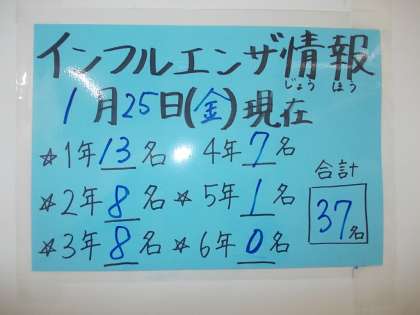 インフルエンザ情報
じょうほう
1月25日(金)現在
☆1年13名 4年7名
☆2年8名☆5年1名
☆3年8名☆6年0名
合計
37名